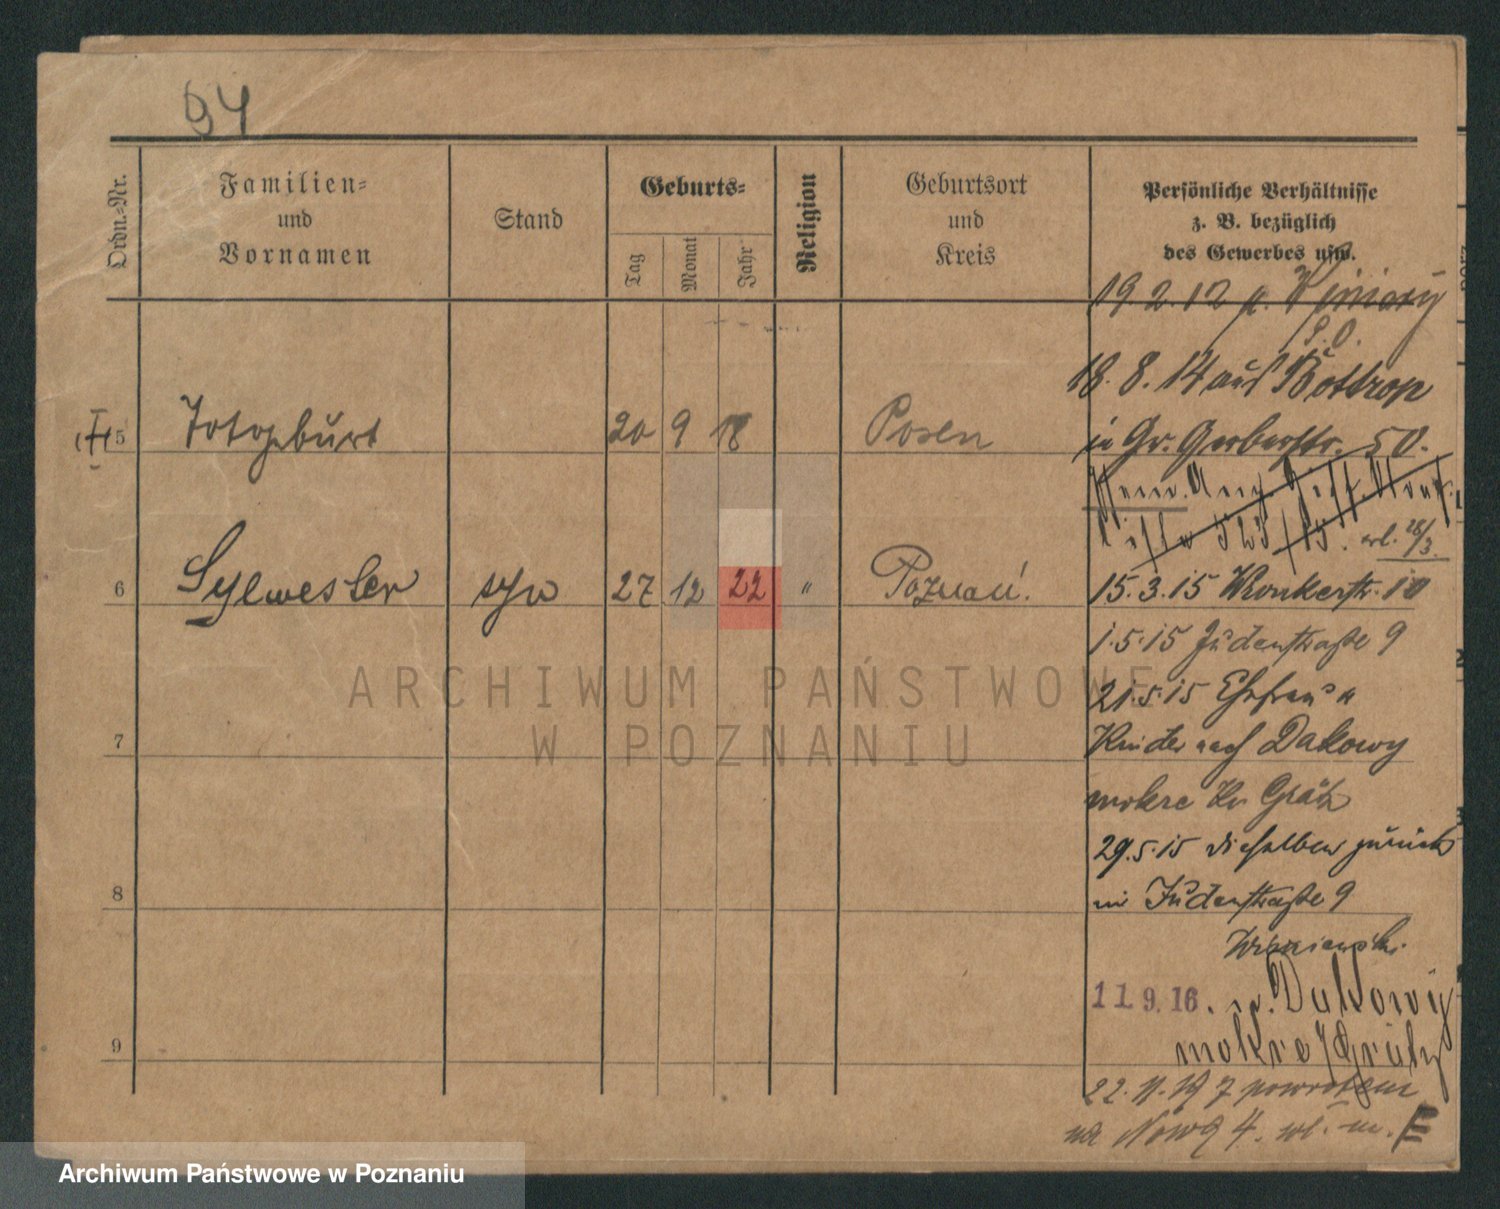 94
Ordn.=Nr.
Familien=
und
Vornamen
Stand
Geburts=
Tag
Monat
Jahr
Religion
Geburtsort
und
Kreis
Persönliche Verhältnisse
z. B. bezüglich
des Gewerbes usw.
19.2.12
18.8.14 aus Bottrop
in Gr. Gerberstr. 50.
5 Totgeburt 20 9 18 Posen
15.3.15 Wronkerstr. 10
6 Sylwester syn 27 12 22 " Poznań.
1.5.15 Judenstraße 9
21.5.15 Ehefrau u
7 Kinder nach Dakowy
mokre Kr Grätz
29.5.15 dieselben zurück
8 in Judenstraße 9
Wisniewski.
11.9.16. n. Dakowy
9 mokre / Grätz
22.11.19 powrotem
na Nową 4.
ARCHIWUM PAŃSTWOWE
W POZNANIU
Archiwum Państwowe w Poznaniu